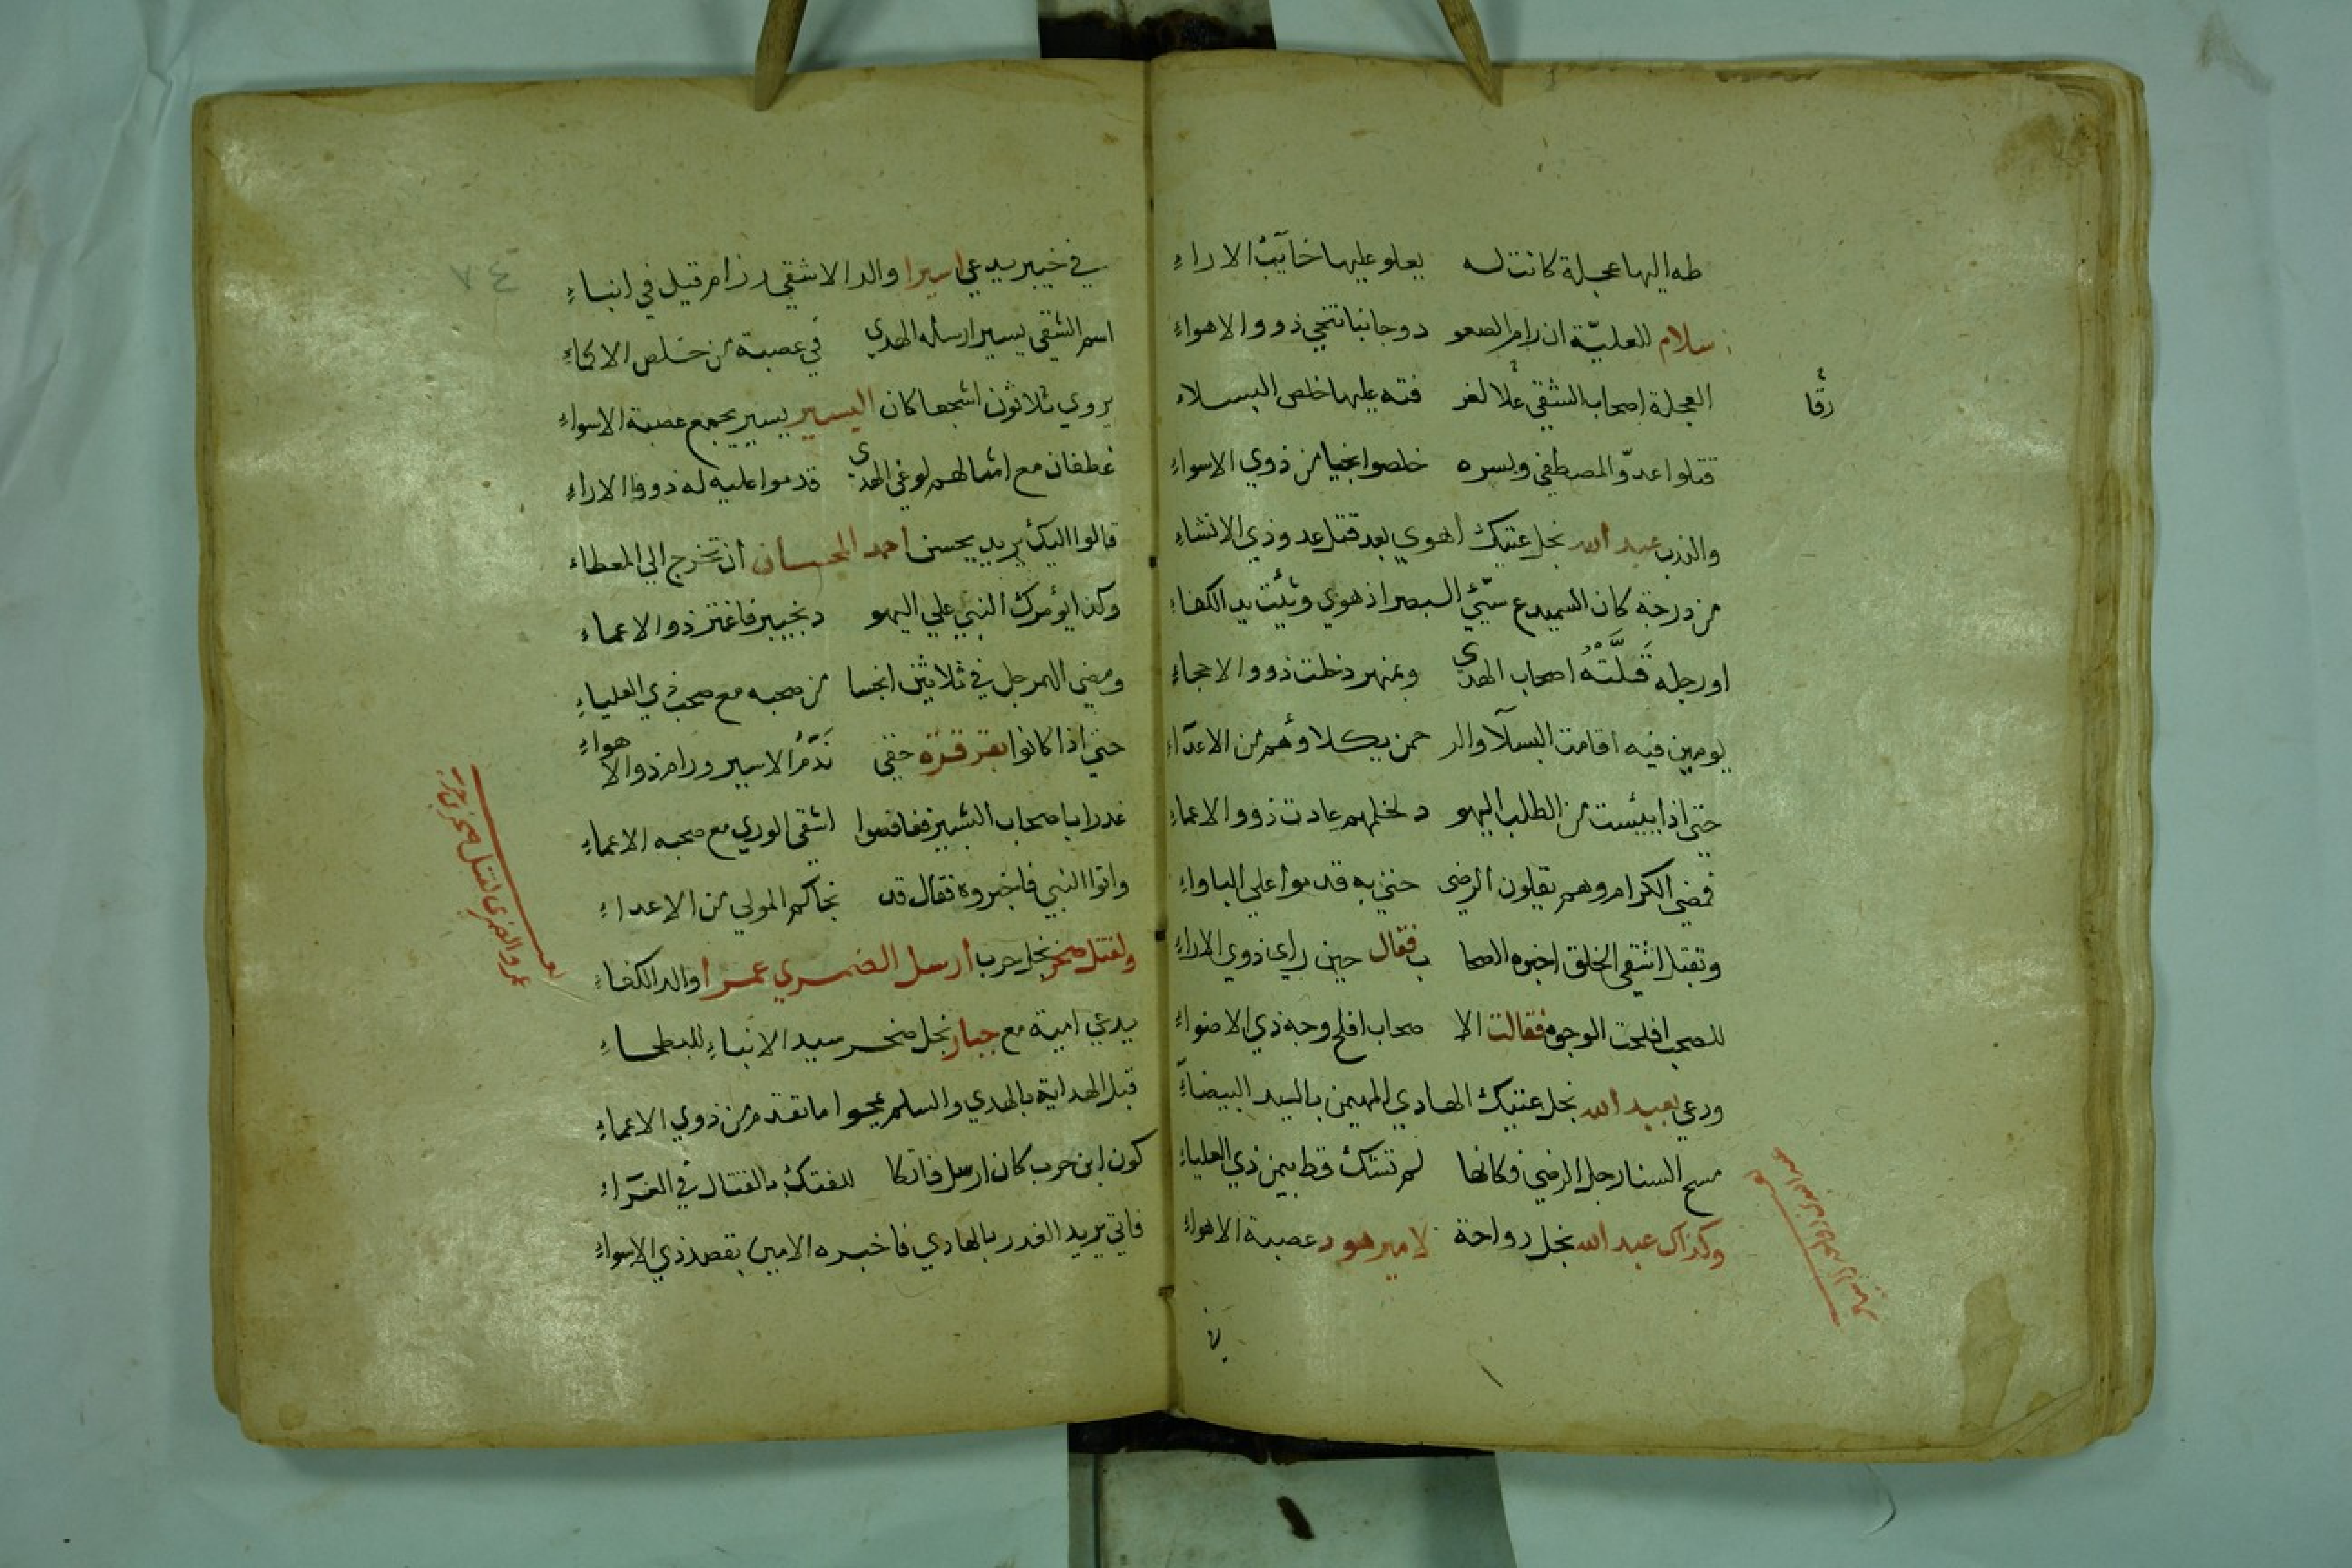 طه اليها عجلة كانت له يعلو عليها خآئب الاراءِ
سلام للعليّة ان رام الصعو د وجانبا تنحي ذوو الاهواءِ
العجلة اصحاب الشقي علا لغر فته عليها خلص البسلاء
رقا
قتلوا عدوّ المصطفي وبسره خلصوا نجيا من ذوي الاسواءِ
والندب عبد الله نجل عتيك اهوي بعد قتل عدو ذي الانشاءِ
من درجة كان السميدع سيّئ البصر اذ هوي وثئت يد الكفاءِ
او رجله قَلَّتْهُ اصحاب الهدي وبمنهر دخلت ذوو الاحجاءِ
يومين فيه اقامت البسلآ والر حمن يكلاؤهم من الاعدآءِ
حتي اذا يئست من الطلب اليهو د لخلهم عادت ذوو الاعماءِ
فمضي الكرام وهم يقلون الرضي حتي به قدموا علي الباواءِ
وبقتل اشقي الخلق اخبره الصحا ب فقال حين راي ذوي الاراءِ
للصحب افلحت الوجوه فقالت الا صحاب افلح وجه ذي الاضواءِ
ودعي بعبد الله نجل عتيك الهادي المهيمن باليد البيضآءِ
مسح السنا رجل الرضي فكانها لم تشتك قط بيمن ذي العلياءِ
وكذاك عبد الله نجل رواحة لامير هود عصبة الاهواءِ
في
في خيبر يدعي اسيرا والد الاشقي رزام قيل في انباءِ
اسم الشقي يسير ارسله الهدي في عصبة من خلص الاكماءِ
يروي ثلاثون اشجعا كان اليسير يسير يجمع عصبة الاسواءِ
غطفان مع امثالهم لوغي الهدي قدموا عليه له ذووا الاراءِ
قالوا اليك يريد يحسن احمد المحسان ان تخرج الي المعطاء
وكذا يؤمرك النبي علي اليهو د بخيبر فاغتر ذو الاعماءِ
ومضي الهمرجل في ثلاثين انجسا من صحبه مع صحب ذي العلياءِ
حتي اذا كانوا بقرقرة خفي نَدَمُ الاسير ورام ذو الاهواءِ
غدرا باصحاب البشير فعاقصوا اشقي الوري مع صحبه الاعماءِ
واتوا النبي فاخبروه فقال قد نجاكم المولي من الاعداءِ
ولقتل صخر نجل حرب ارسل الضمري عمرا والد الكفاءِ
يدعي امية مع جبار نجل صخر سيد الانباءِ للبطحاءِ
قبل الهداية بالهدي والسلم محوا ما تقدم من ذوي الاعماءِ
كون ابن حرب كان ارسل فاتكا للفتك بالفتال في الغرّاءِ
فاتي يريد الغدر بالهادي فاخبره الامين بقصد ذي الاسواءِ
بعث عمرو الضمري لقتل صخر بن حرب
٧٤